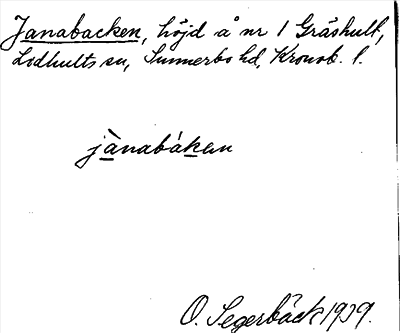 Janabacken, höjd å nr 1 Gråshult,
Lidhults sn, Sunnerbo hd, Kronob. l.
jànabákan
O. Segerbäck 1939.